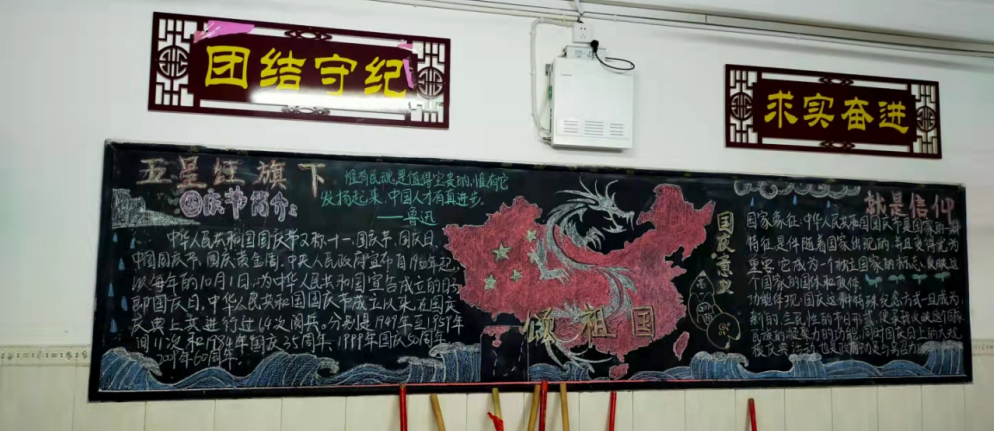 团结守纪
求实奋进
五星红旗下
国庆节简介
惟有民魂是值得宝贵的,惟有它
发扬起来,中国人才有真进步.
——鲁迅
中华人民共和国国庆节又称十一、国庆节、国庆日、
中国国庆节、国庆黄金周.中央人民政府宣布自1950年起,
以每年的10月1日,为中华人民共和国宣告成立的日子
即国庆日.中华人民共和国国庆节成立以来,在国庆
庆典上共进行过14次阅兵.分别是1949年至1959年
间11次和1984年国庆35周年、1999年国庆50周年
2009年60周年
颂祖国
国庆意义
就是信仰
国家象征:中华人民共和国国庆节是国家的一种
特征是伴随着国家出现的,并且变得尤为
重要.它成为一个独立国家的标志,反映这
个国家的国体和政体
功能体现:国庆这种特殊纪念方式一旦成为
新的全民性的节日形式,便承载反映这个国家
民族的凝聚力的功能,同时国庆日上的大规